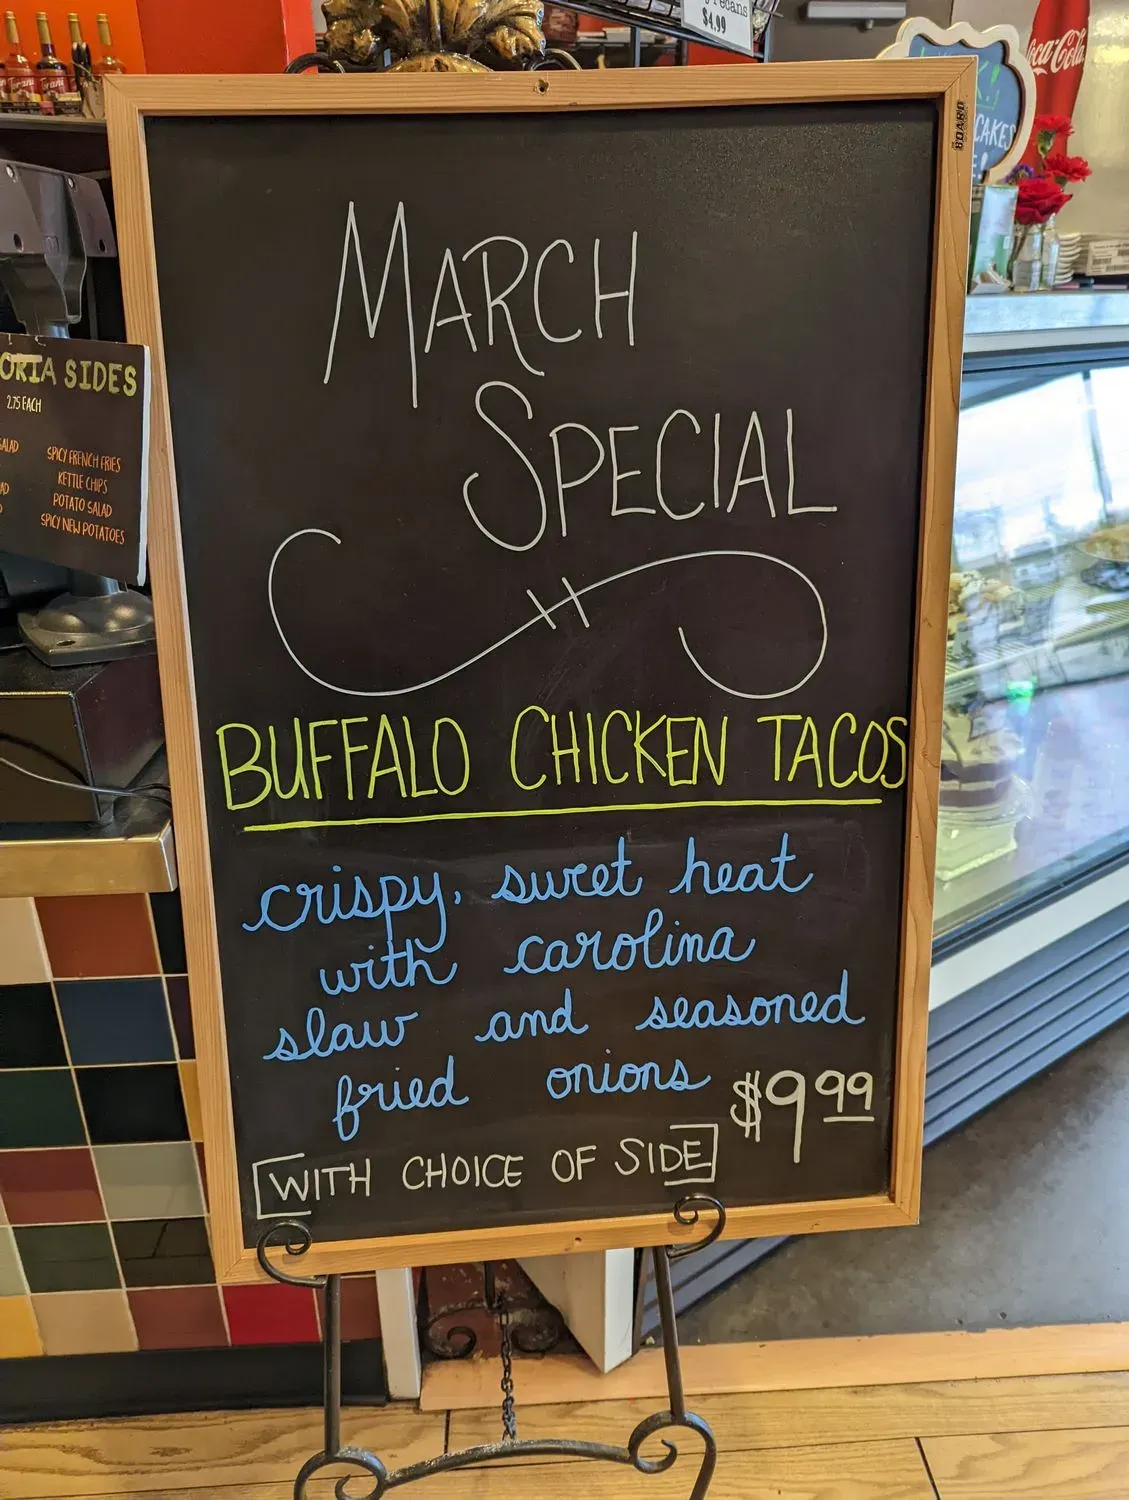 pecans
$4.99
Coca-Cola
Torani
BOARD
CAKES
MARCH
SPECIAL
BUFFALO CHICKEN TACOS
crispy, sweet heat
with carolina
slaw and seasoned
fried onions
$9.99
WITH CHOICE OF SIDE
SIDES
2.75 EACH
SALAD
SPICY FRENCH FRIES
KETTLE CHIPS
POTATO SALAD
SPICY NEW POTATOES